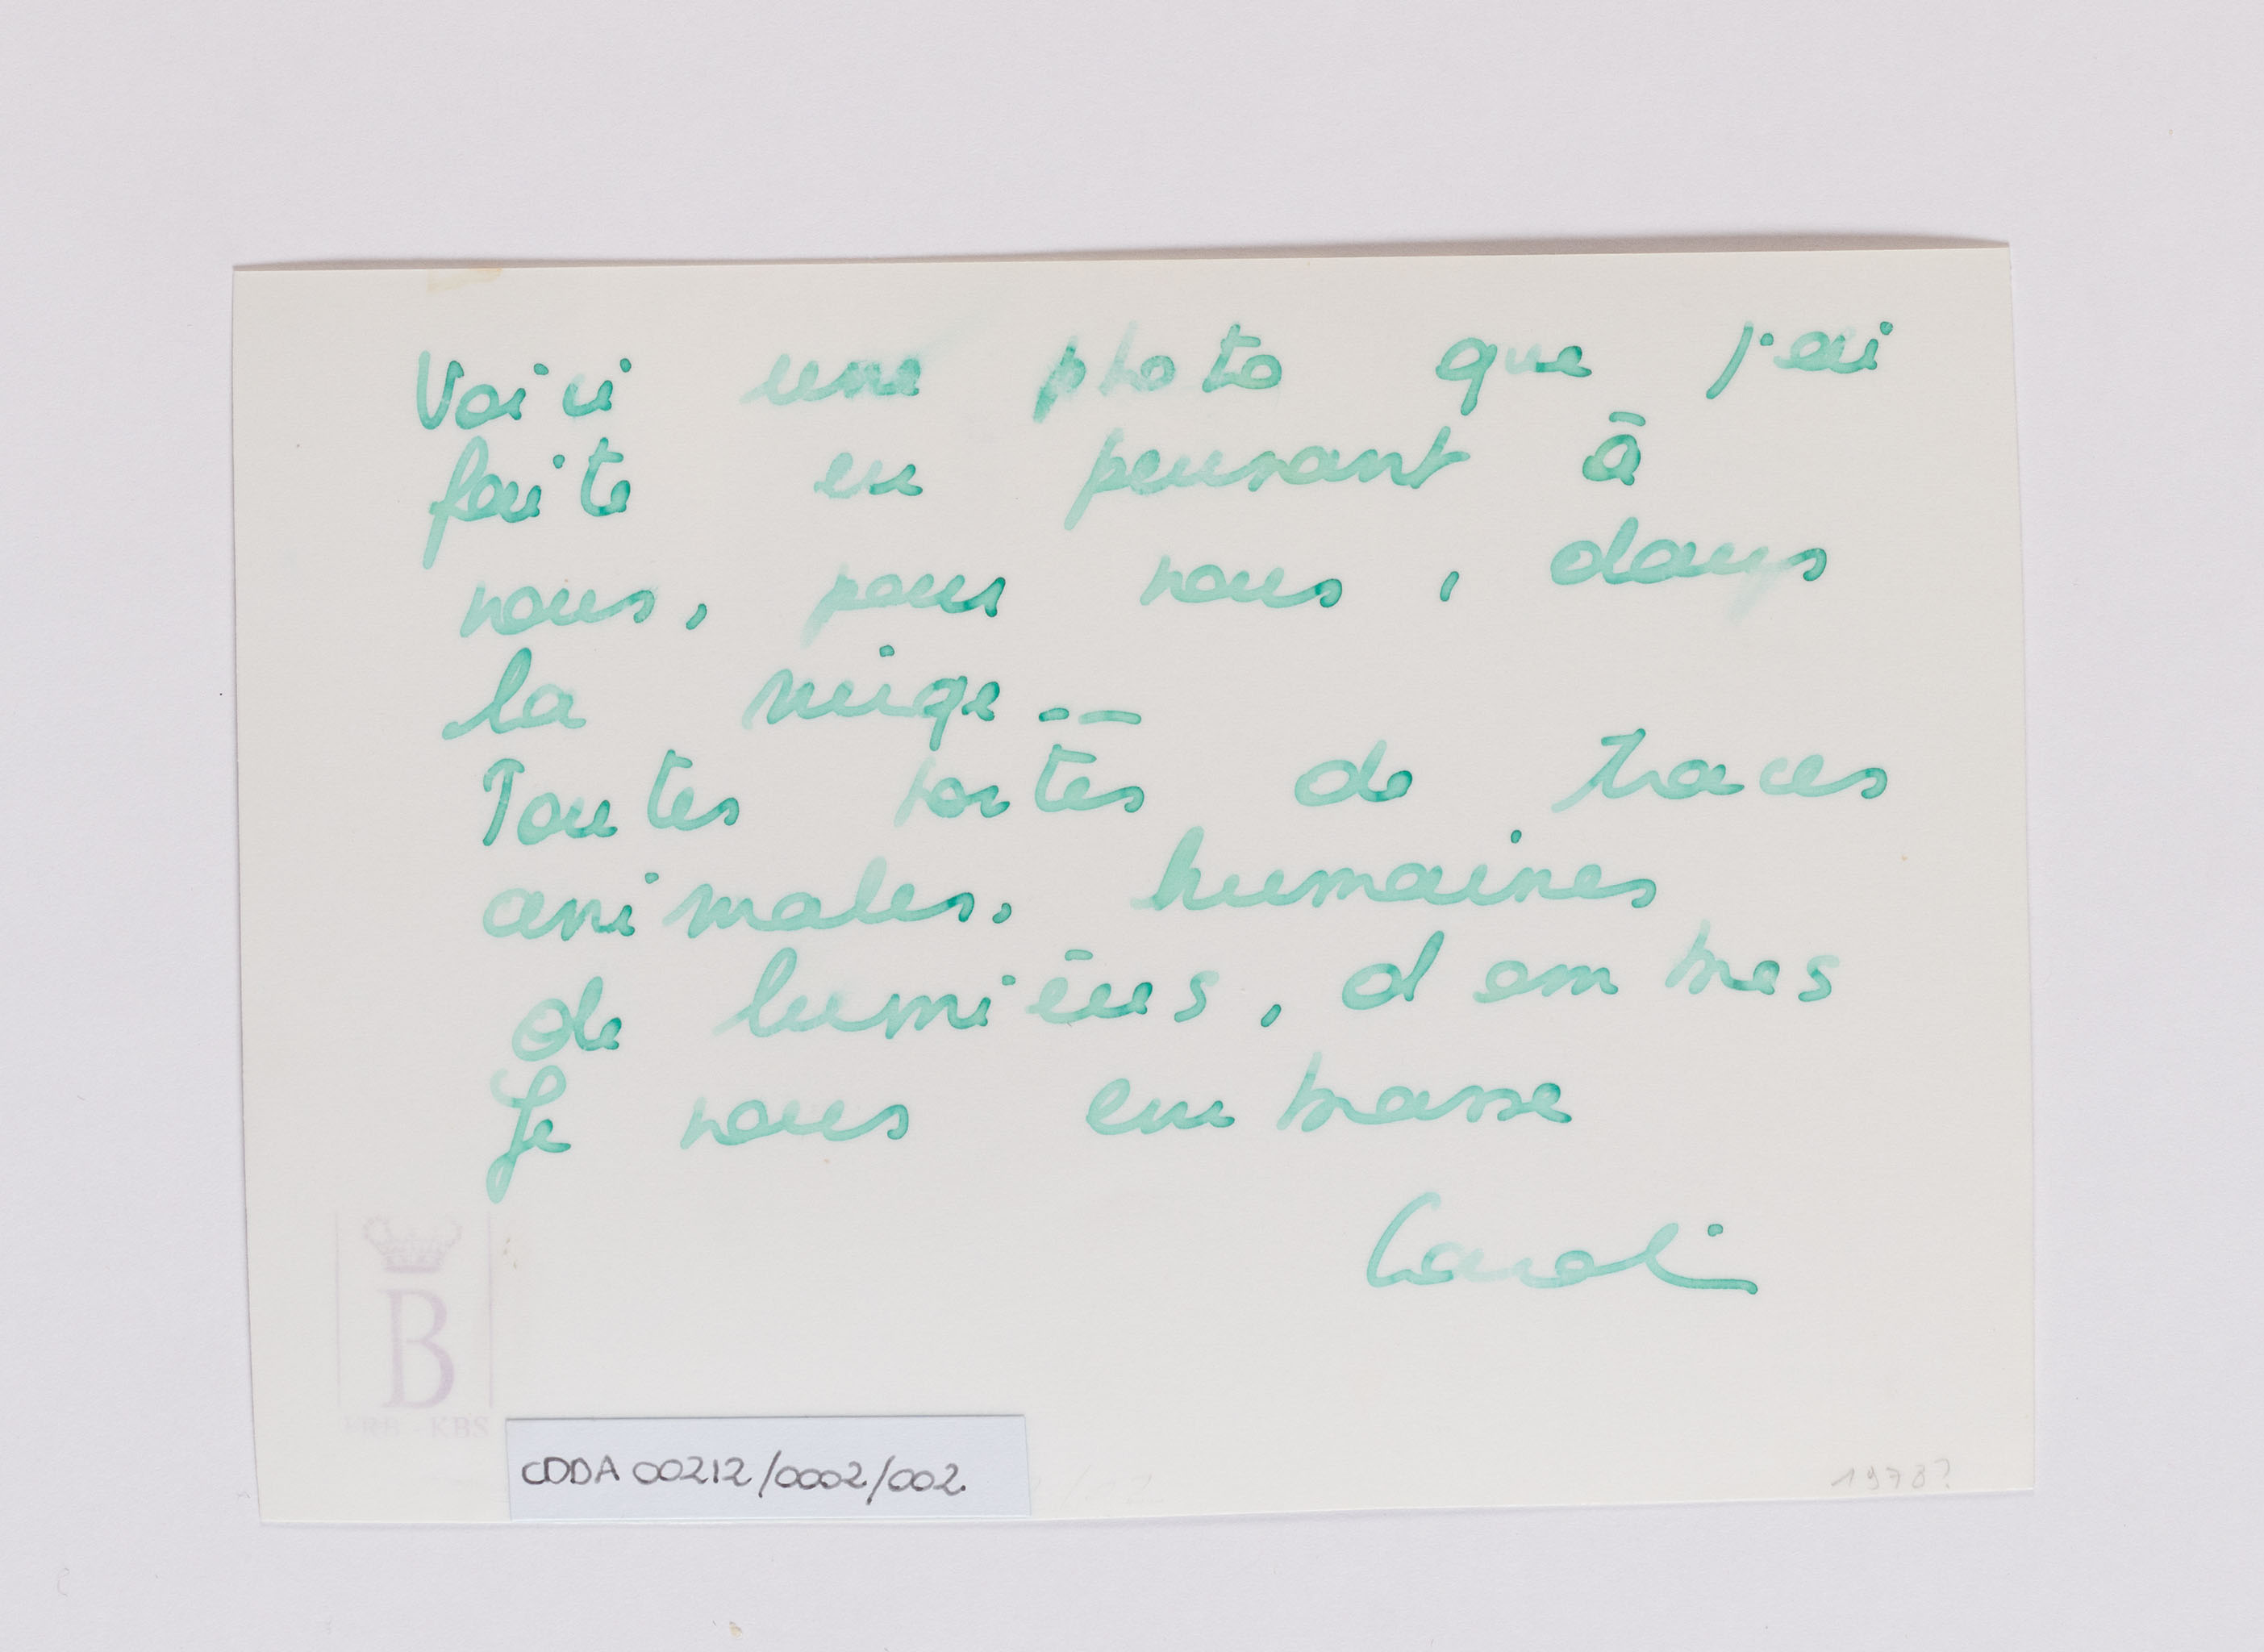 Voici une photo que j'ai
faite en pensant à
vous, pour vous, dans
la neige.–
Toutes sortes de traces
animales, humaines
de lumières, d'ombres
Je vous embrasse
B
FRB - KBS
CDDA 00212/0002/002.
1978?